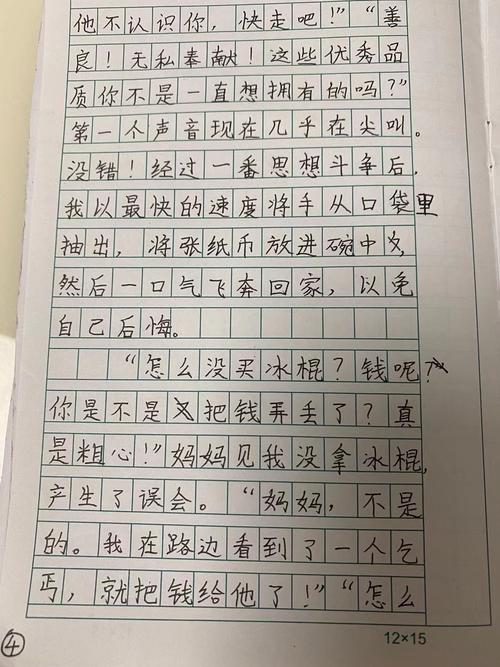 他不认识你，快走吧！”“善
良！无私奉献！这些优秀品
质你不是一直想拥有的吗？”
第一个声音现在几乎在尖叫。
没错！经过一番思想斗争后，
我以最快的速度将手从口袋里
抽出，将张纸币放进碗中，
然后一口气飞奔回家，以免
自己后悔。
“怎么没买冰棍？钱呢？
你是不是把钱弄丢了？真
是粗心！”妈妈见我没拿冰棍，
产生了误会。“妈妈，不是
的。我在路边看到了一个乞
丐，就把钱给他了！”“怎么
④
12×15